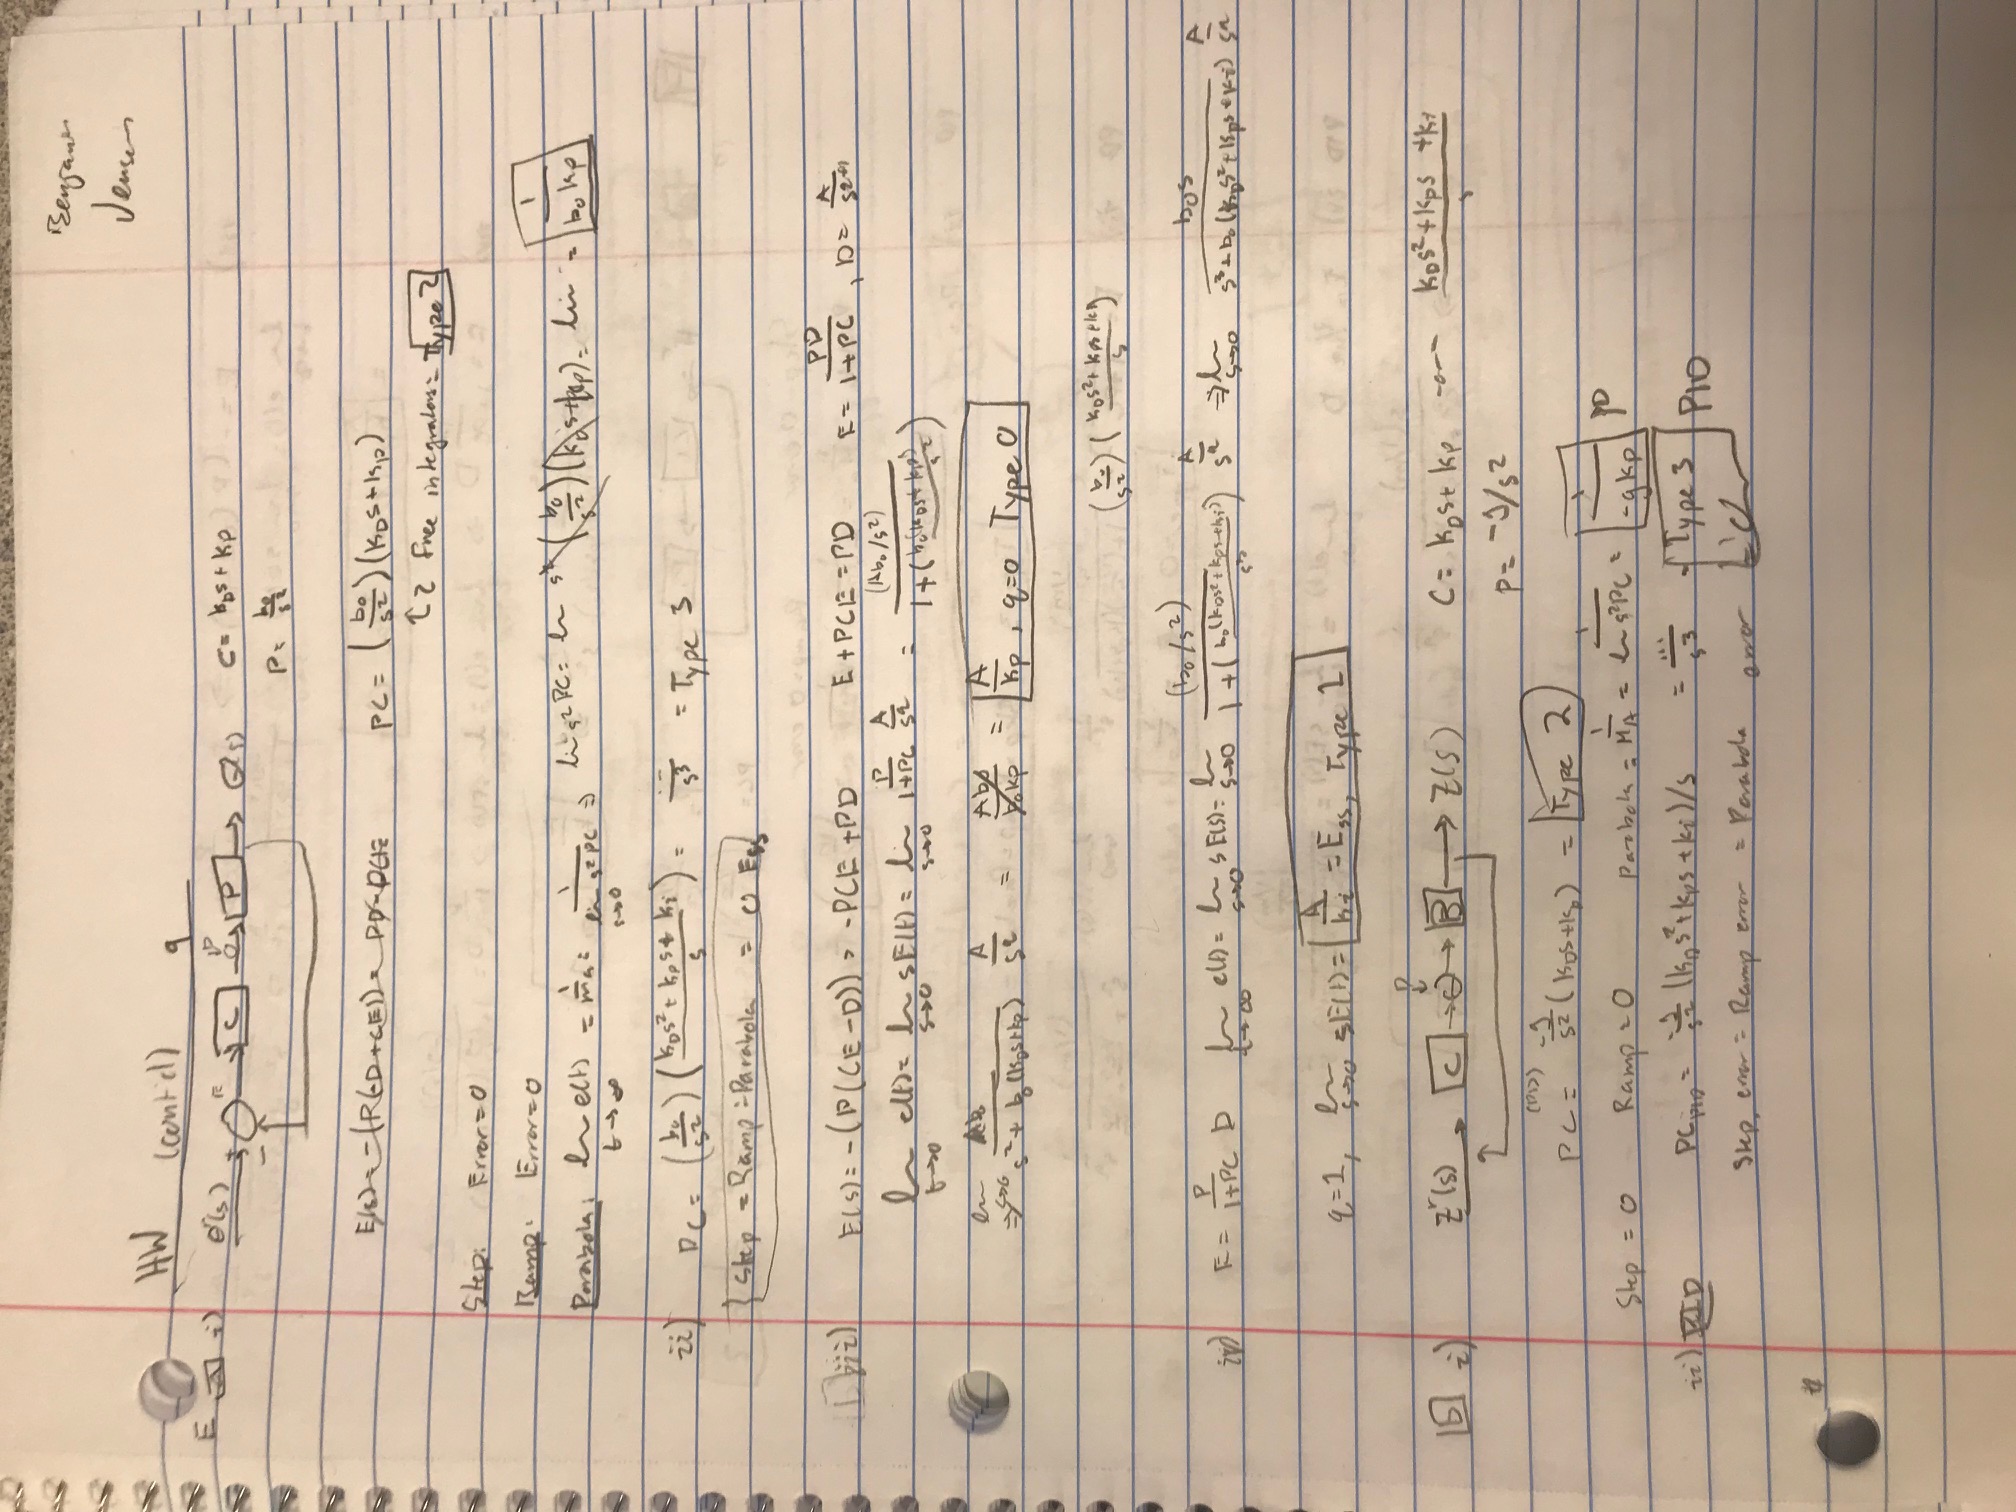 Benjamin
Jensen
HW (cont'd) 9
E i) θʳ(s) + - E C D P θ(s) C = k_D s + k_P
P = b₀/s²
E(s) = -(P(-D+CE)) = PD - PCE PC = (b₀/s²)(k_D s + k_P)
↑ 2 free integrators = Type 2
Step: Error = 0
Ramp: Error = 0
Parabola: lim t→∞ e(t) = 1/m_a = 1/(lim s→0 s²PC) ⇒ lim s²PC = lim s² (b₀/s²)(k_D s + k_P) = lim = 1/(b₀ k_P)
ii) PC = (b₀/s²)((k_D s² + k_P s + k_i)/s) = .../s³ = Type 3
Step = Ramp = Parabola = 0 E_ss
iii) E(s) = -(P(CE-D)) = -PCE + PD E + PCE = PD E = PD/(1+PC), D = A/s^(q+1)
lim t→0 e(t) = lim s→0 sE(t) = lim s→0 P/(1+PC) A/s^q = (Ab₀/s²)/(1+(b₀(k_D s + k_P)/s²))
⇒ lim s→0 Ab/(s² + b₀(k_D s + k_P)) A/s^q = Ab₀/(b₀k_P) = A/k_P, q=0 Type 0
(b₀/s²)((k_D s² + k_P s + k_i)/s)
iv) E = P/(1+PC) D lim t→∞ e(t) = lim s→0 sE(s) = lim s→0 (b₀/s²)/(1+(b₀(k_D s² + k_P s + k_i)/s³)) A/s^q ⇒ lim s→0 b₀s/(s³ + b₀(k_D s² + k_P s + k_i)) A/s^q
q=1, lim s→0 sE(t) = A/k_i = E_ss, Type 1
b i) Zʳ(s) C D B Z(s) C = k_D s + k_P (k_D s² + k_P s + k_i)/s
P = -g/s²
(PD)
PC = -g/s² (k_D s + k_P) = Type 2
Step = 0 Ramp = 0 Parabola = 1/M_A = 1/(lim s²PC) = 1/(-g k_P) PD
ii) PID PC_PID = -g/s² (k_D s² + k_P s + k_i)/s = .../s³ = Type 3 PID
Step error = Ramp error = Parabola error = 0